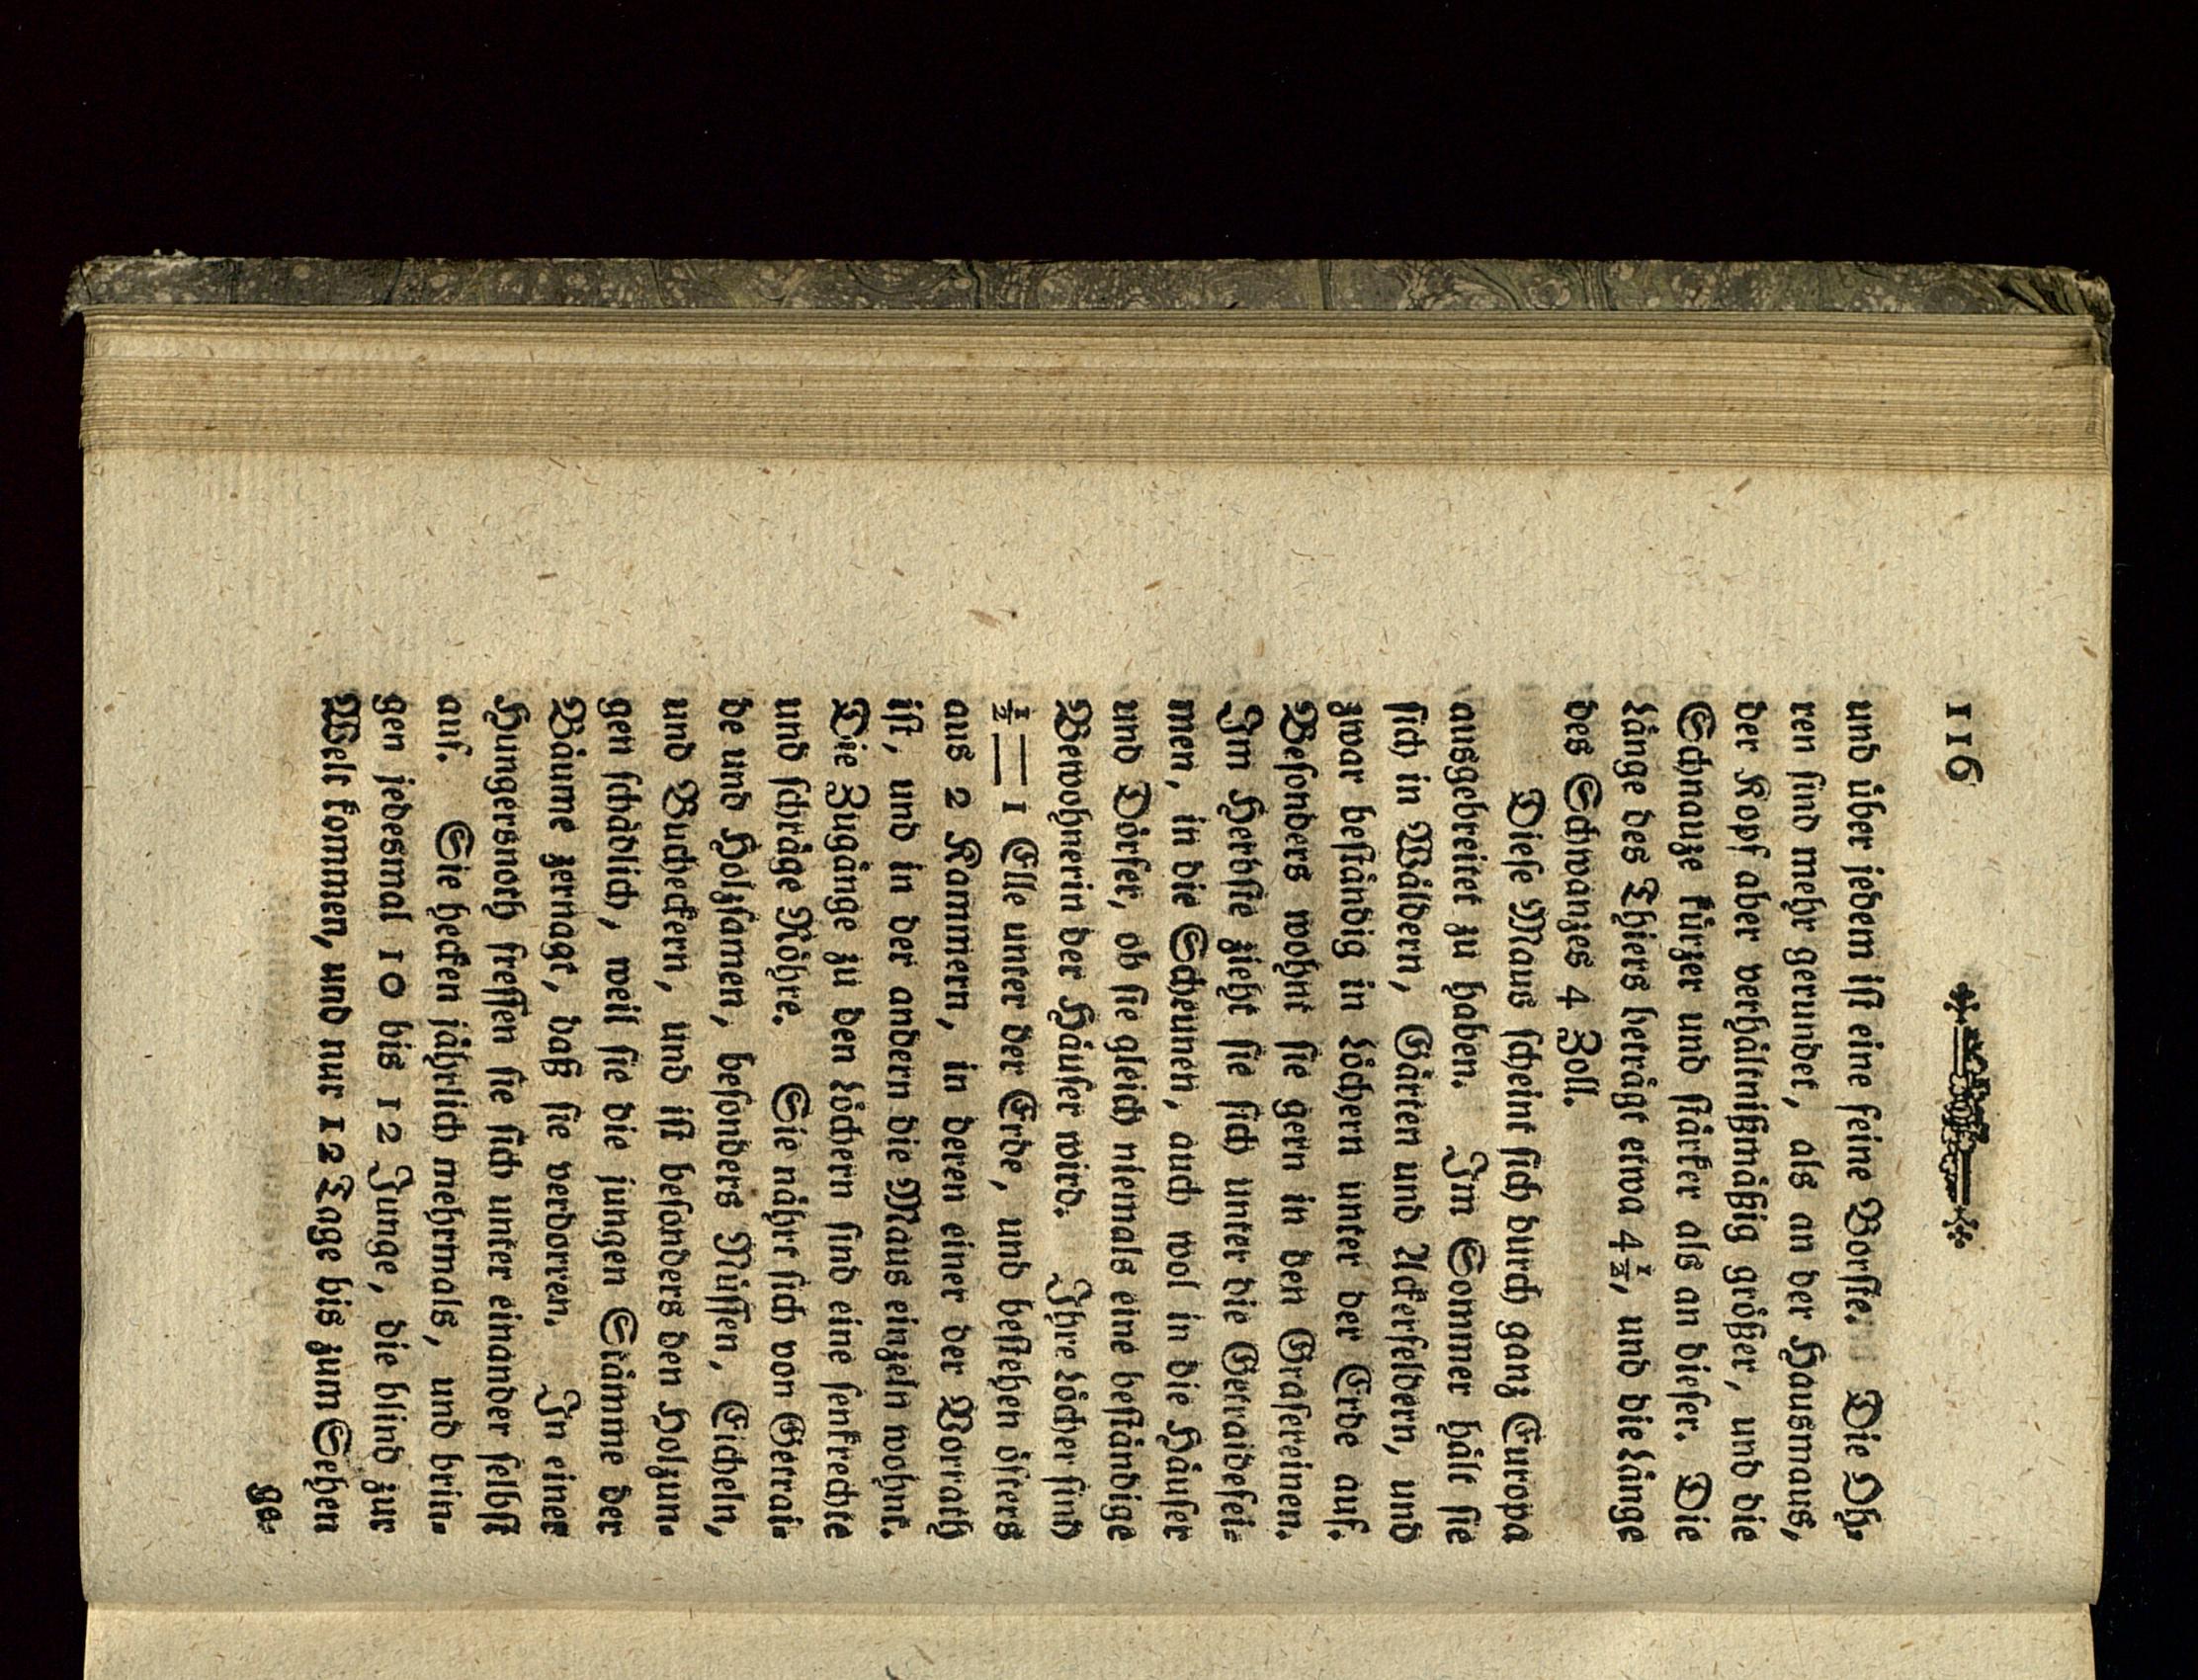 116
und über jedem iſt eine feine Borſte. Die Oh-
ren ſind mehr gerundet, als an der Hausmaus,
der Kopf aber verhältnißmäßig größer, und die
Schnauze kürzer und ſtärker als an dieſer. Die
Länge des Thiers beträgt etwa 4½, und die Länge
des Schwanzes 4 Zoll.
Dieſe Maus ſcheint ſich durch ganz Europa
ausgebreitet zu haben. Im Sommer hält ſie
ſich in Wäldern, Gärten und Ackerfeldern, und
zwar beſtändig in Löchern unter der Erde auf.
Beſonders wohnt ſie gern in den Graſereinen.
Im Herbſte zieht ſie ſich unter die Getraidefei-
men, in die Scheunen, auch wol in die Häuſer
und Dörfer, ob ſie gleich niemals eine beſtändige
Bewohnerin der Häuſer wird. Ihre Löcher ſind
½ — 1 Elle unter der Erde, und beſtehen öfters
aus 2 Kammern, in deren einer der Vorrath
iſt, und in der andern die Maus einzeln wohnt.
Die Zugänge zu den Löchern ſind eine ſenkrechte
und ſchräge Röhre. Sie nährt ſich von Getrai-
de und Holzſamen, beſonders Nüſſen, Eicheln,
und Bucheckern, und iſt beſonders den Holzun-
gen ſchädlich, weil ſie die jungen Stämme der
Bäume zernagt, daß ſie verdorren. In einer
Hungersnoth freſſen ſie ſich unter einander ſelbſt
auf. Sie hecken jährlich mehrmals, und brin-
gen jedesmal 10 bis 12 Junge, die blind zur
Welt kommen, und nur 12 Tage bis zum Sehen
ge-